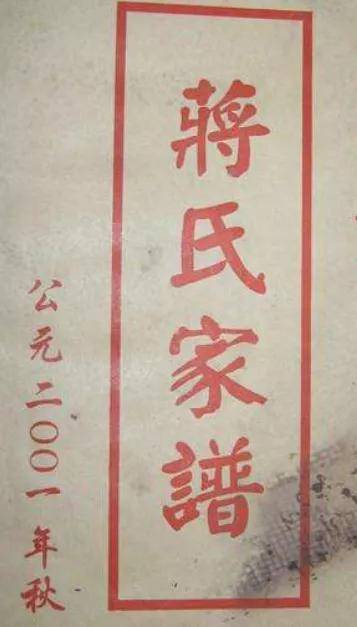 蔣氏家譜
公元二〇〇一年秋